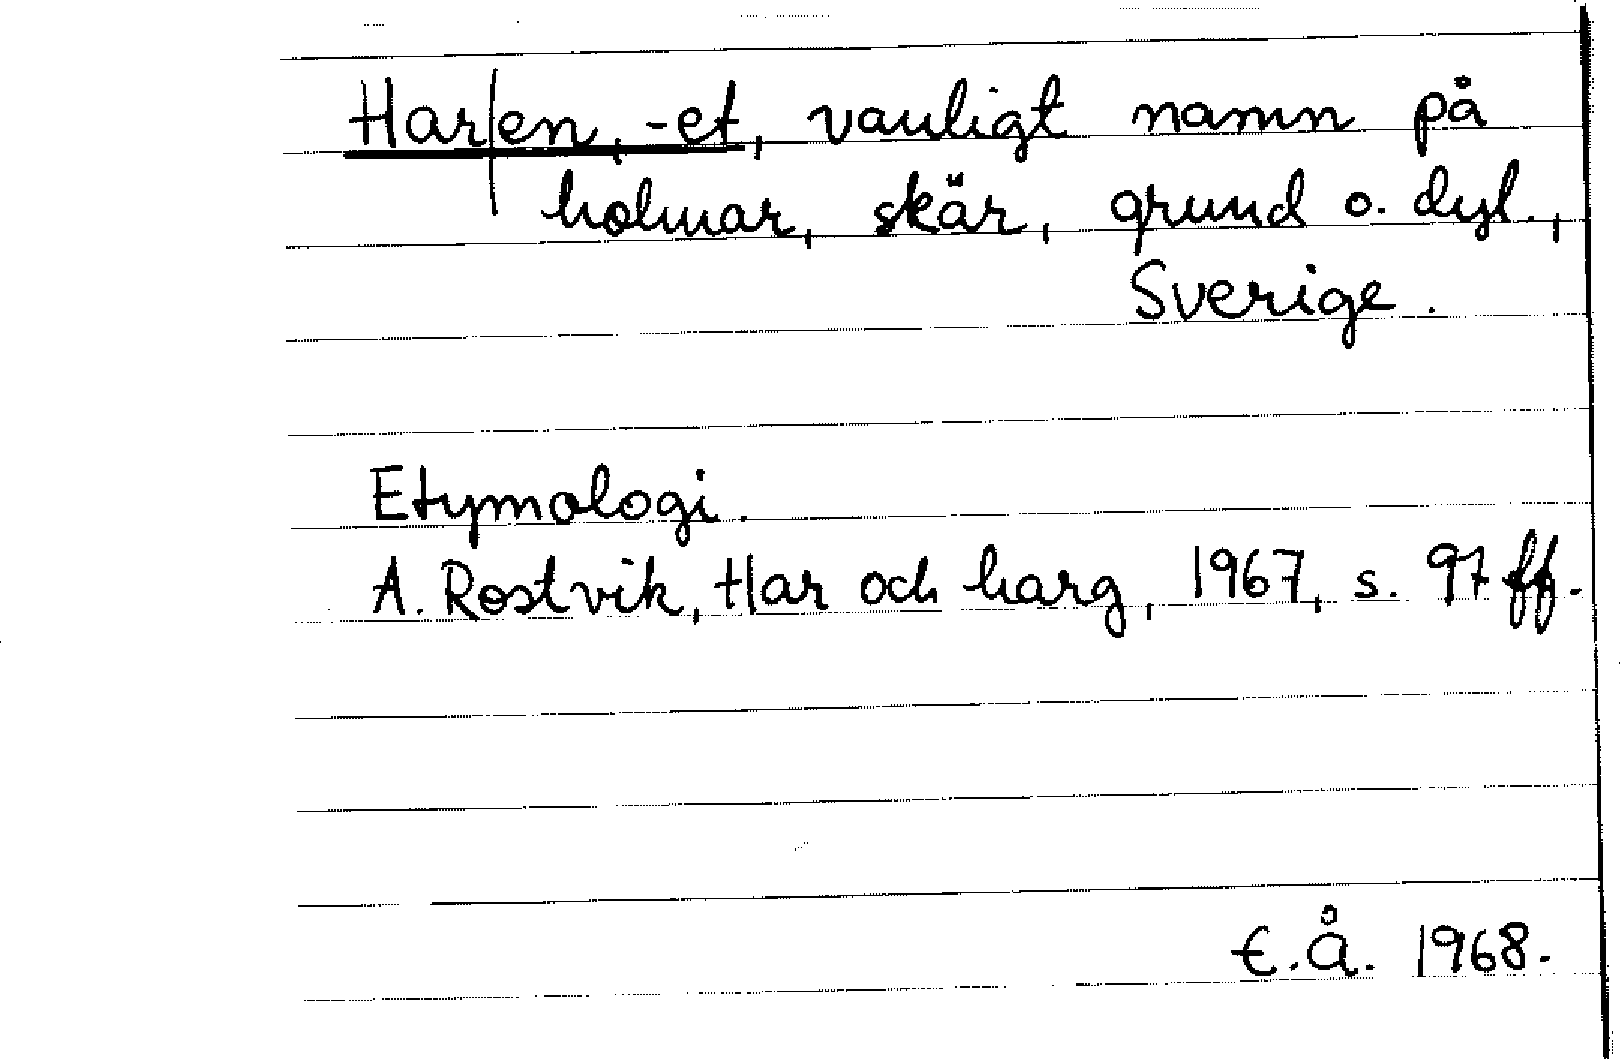 Har|en, -et, vanligt namn på
holmar, skär, grund o. dyl.,
Sverige.
Etymologi.
A. Rostvik, Har och harg, 1967, s. 97 ff.
E.Å. 1968.